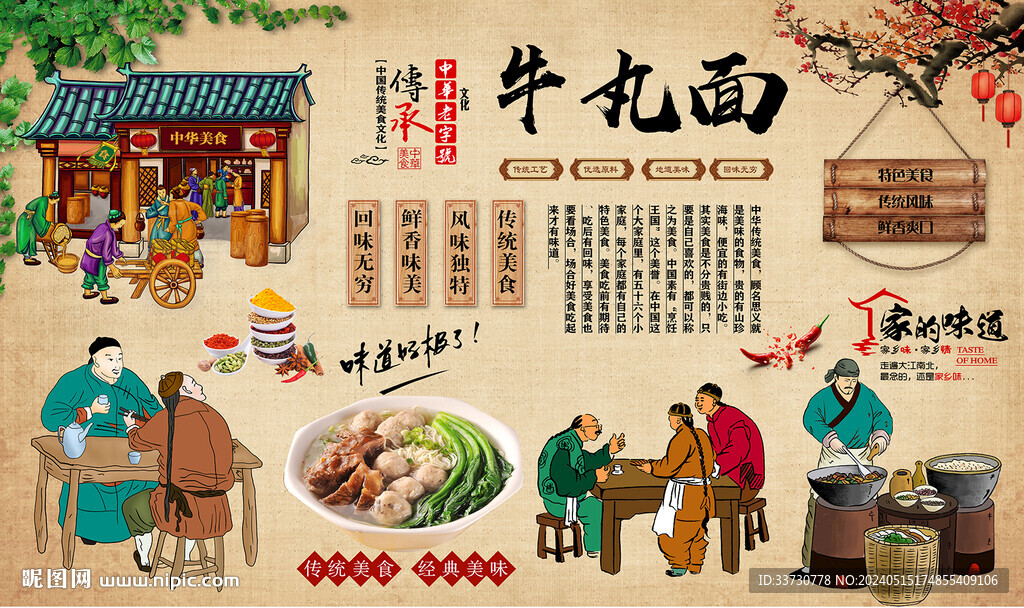 牛丸面
中华老字號
文化
傳承
【中国传统美食文化】
中華美食
中华美食
传统工艺
优选原料
地道美味
回味无穷
特色美食
传统风味
鲜香爽口
传统美食
风味独特
鲜香味美
回味无穷
中华传统美食，顾名思义就
是美味的食物，贵的有山珍
海味，便宜的有街边小吃。
其实美食是不分贵贱的，只
要是自己喜欢的，都可以称
之为美食。中国素有"烹饪
王国。这个美誉。在中国这
个大家庭里，有五十六个小
家庭，每个家庭都有自己的
特色美食。美食吃前有期待
、吃后有回味，享受美食也
要看场合，场合好美食吃起
来才有味道。
味道好极了！
家的味道
家乡味·家乡情
TASTE
OF HOME
走遍大江南北，
最念的，还是家乡味...
传统美食
经典美味
昵图网 www.nipic.com
ID:33730778 NO:20240515174855409106